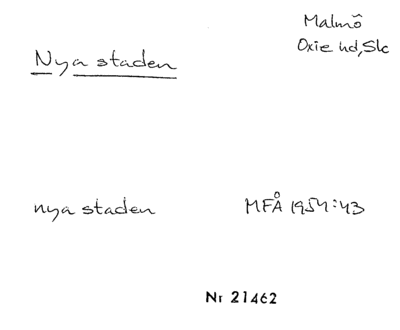 Malmö
Oxie hd, Skc
Nya staden
nya staden MFÅ 1954:43
Nr 21462